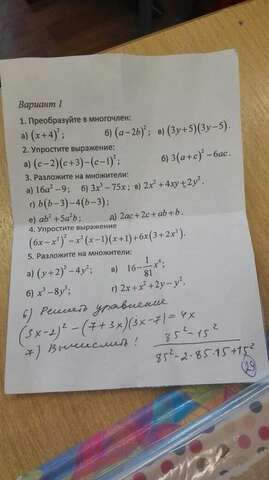 Вариант 1
1. Преобразуйте в многочлен:
а) (x+4)²; б) (a−2b)²; в) (3y+5)(3y−5).
2. Упростите выражение:
а) (c−2)(c+3)−(c−1)²; б) 3(a+c)²−6ac.
3. Разложите на множители:
а) 16a²−9; б) 3x³−75x; в) 2x²+4xy+2y².
г) b(b−3)−4(b−3);
е) ab²+5a²b; д) 2ac+2c+ab+b.
4. Упростите выражение
(6x−x²)²−x²(x−1)(x+1)+6x(3+2x²).
5. Разложите на множители:
а) (y+2)²−4y²; в) 16−1/81 x⁴;
б) x³−8y³; г) 2x+x²+2y−y².
6) Решить уравнение
(3x−2)²−(7+3x)(3x−7)=4x
7) Вычислить! 85²−15² / 85²−2·85·15+15²
29